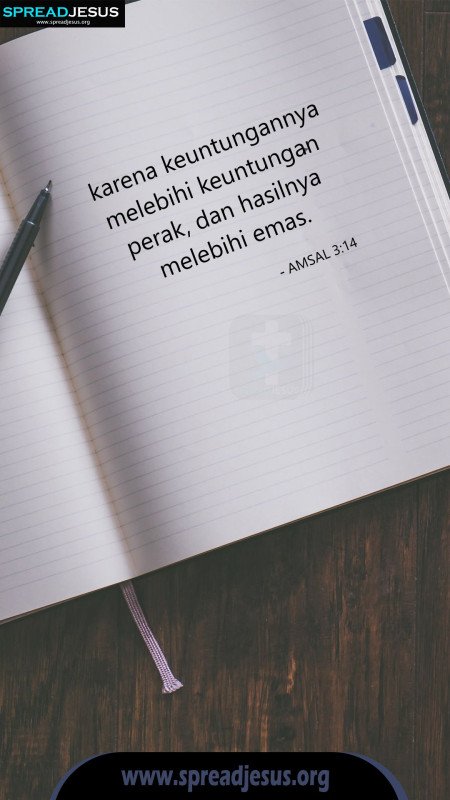 SPREADJESUS
www.spreadjesus.org
karena keuntungannya
melebihi keuntungan
perak, dan hasilnya
melebihi emas.
- AMSAL 3:14
www.spreadjesus.org